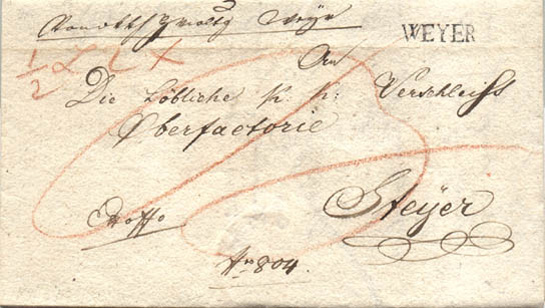 WEYER
An
Die Löbliche K. K: Verschleiß
Oberfactorie
Steyer
Ex offo
Nro 804.